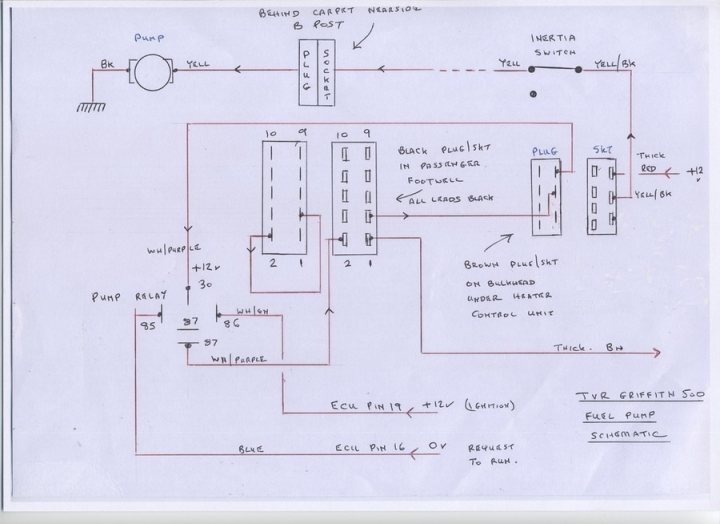 BEHIND CARPET NEARSIDE
B POST
PUMP
INERTIA
SWITCH
BK
YELL
PLUG
SOCKET
YELL
YELL/BK
10 9
10 9
BLACK PLUG/SKT
IN PASSENGER
FOOTWELL
ALL LEADS BLACK
PLUG
SKT
THICK
RED
+12
V
YELL/BK
2 1
2 1
WH/PURPLE
+12V
30
BROWN PLUG/SKT
ON BULKHEAD
UNDER HEATER
CONTROL UNIT
PUMP RELAY
85
87
86
WH/GN
87
WH/PURPLE
THICK. BN
ECU PIN 19 +12V (IGNITION)
BLUE
ECU PIN 16 0V REQUEST
TO RUN.
TVR GRIFFITH 500
FUEL PUMP
SCHEMATIC